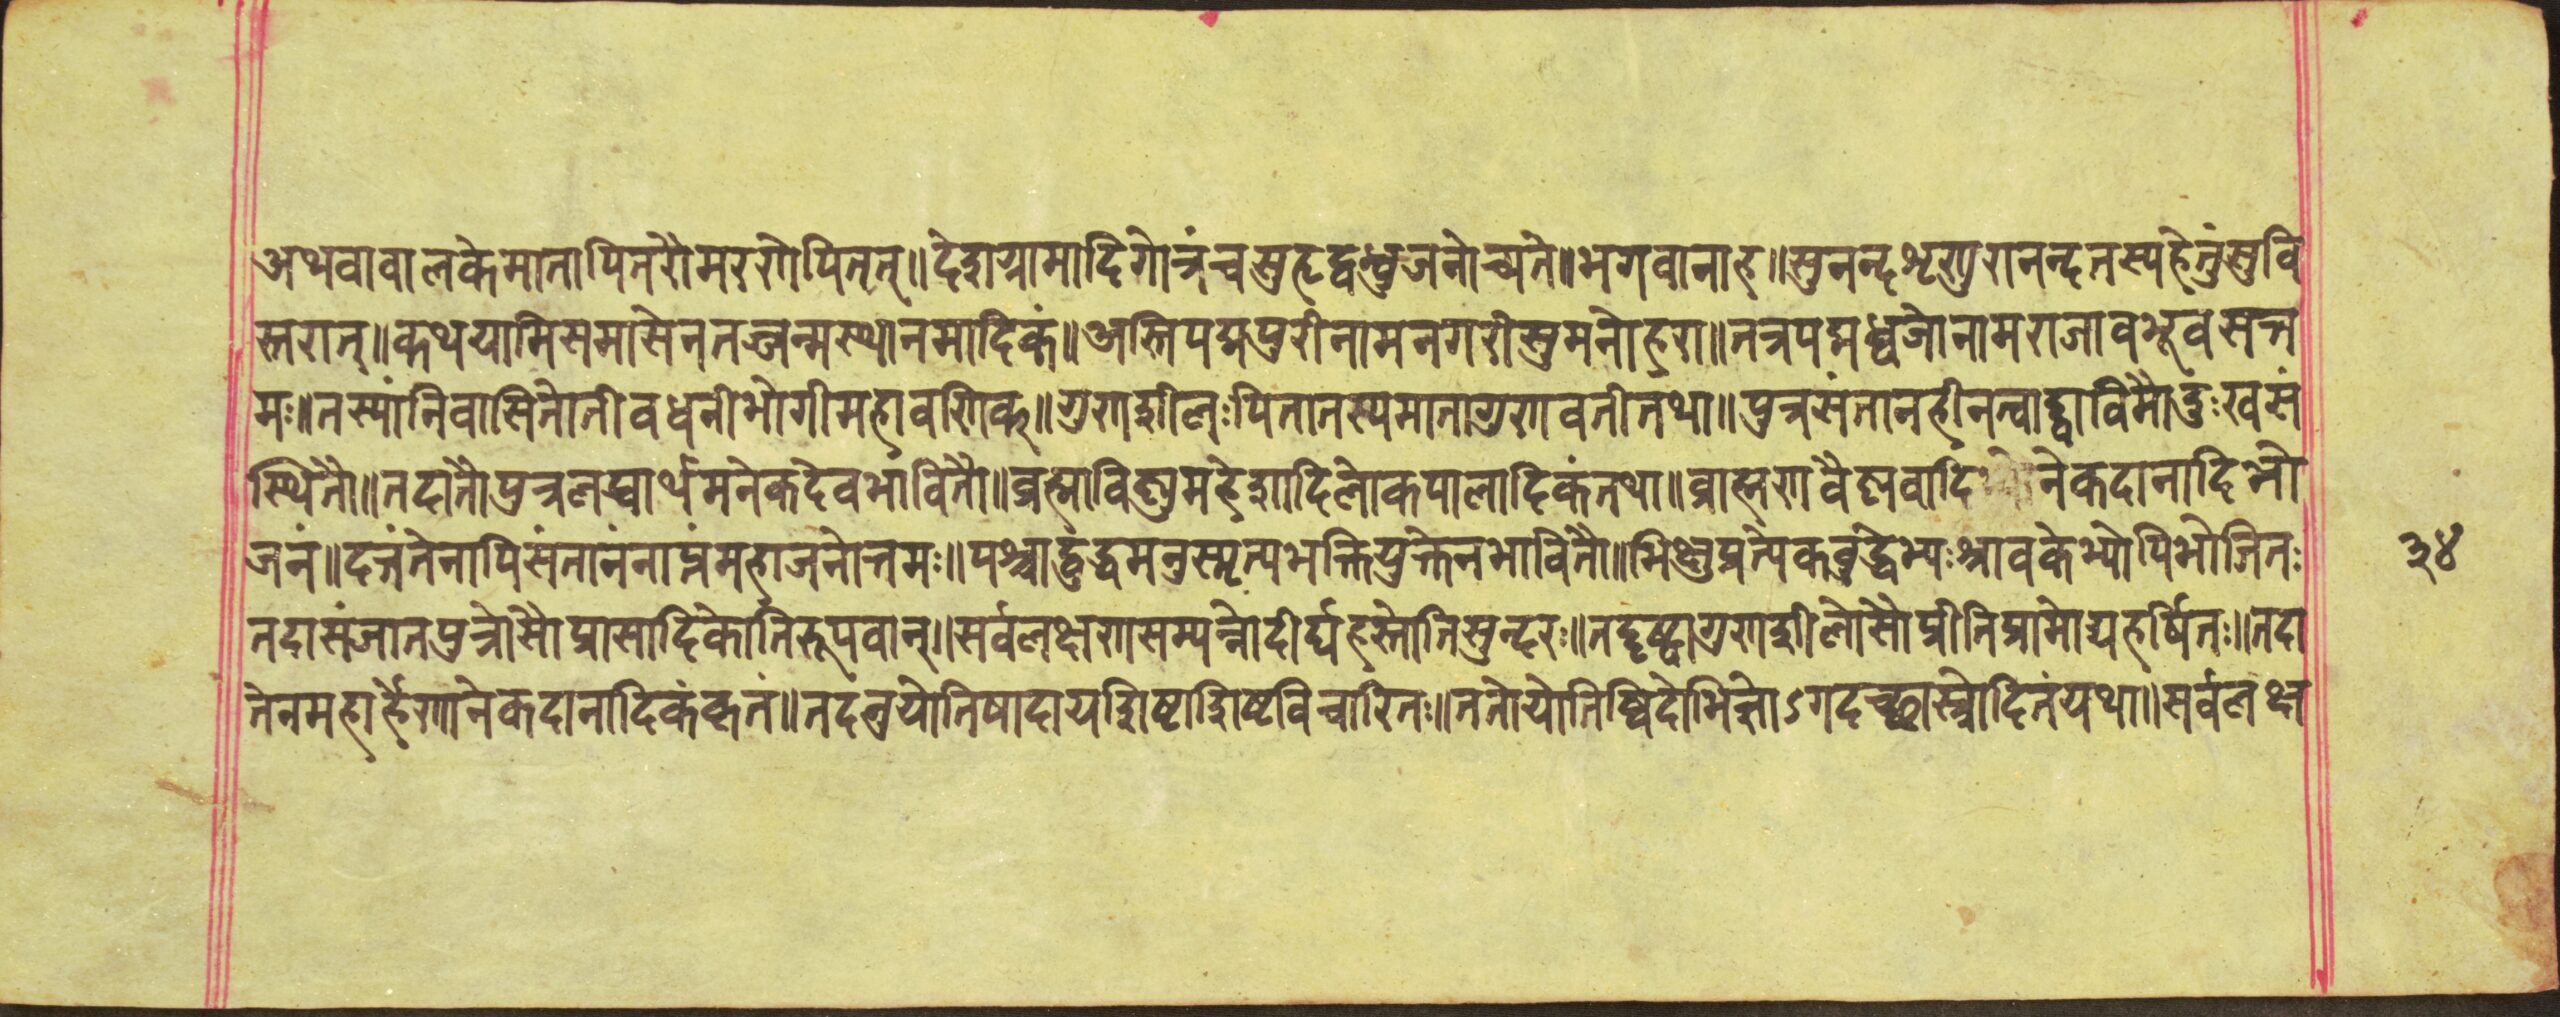 अथवावालकेमातापितरौमरणेपितृन्॥देशग्रामादिगोत्रंचसुहृद्वन्धुजनोच्यते॥भगवानाह॥सुनन्दशृणुरानन्दतस्यहेतुंसुवि
स्तरात्॥कथयामिसमासेनतज्जन्मस्थानमादिकं॥अस्तिपद्मपुरीनामनगरीसुमनोहरा॥तत्रपद्मध्वजोनामराजावभूवसत्त
मः॥तस्यांनिवासिनोतीवधनीभोगीमहावणिक्॥गुणशीलःपितातस्यमातागुणवतीतथा॥पुत्रसंतानहीनत्वाद्द्वाविमौदुःखसं
स्थितौ॥तदातौपुत्रलब्धार्थमनेकदेवभावितौ॥ब्रह्माविष्णुमहेशादिलोकपालादिकंतथा॥ब्राह्मणवैष्णवादिभ्योनेकदानादिभो
जनं॥दत्तंतेनापिसंतानंनाप्तंमहाजनोत्तमः॥पश्चाद्बुद्धमनुस्मृत्यभक्तियुक्तेनभावितौ॥भिक्षुप्रत्येकबुद्धेभ्यःश्रावकेभ्योपिभोजितः
तदासंजातपुत्रोसौप्रासादिकोतिरूपवान्॥सर्वलक्षणसम्पन्नोदीर्घहस्तोतिसुन्दरः॥तद्दृष्ट्वागुणशीलोसौप्रीतिप्रामोद्यहर्षितः॥तदा
तेनमहार्हेणानेकदानादिकंकृतं॥तदंतुयोतिषादायद्विष्टाद्विष्टविचारितः॥ततोयोतिष्विदोभिज्ञोऽगदच्छास्त्रोदितंयथा॥सर्वलक्ष
३४